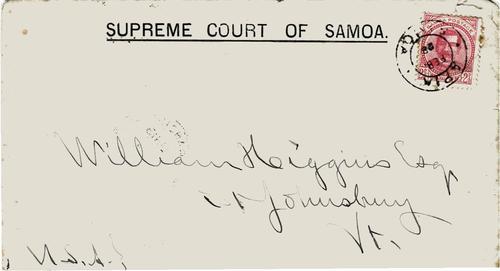 SUPREME COURT OF SAMOA.
APIA
FEB
William Higgins Esqr
St Johnsbury
Vt.
U.S.A.